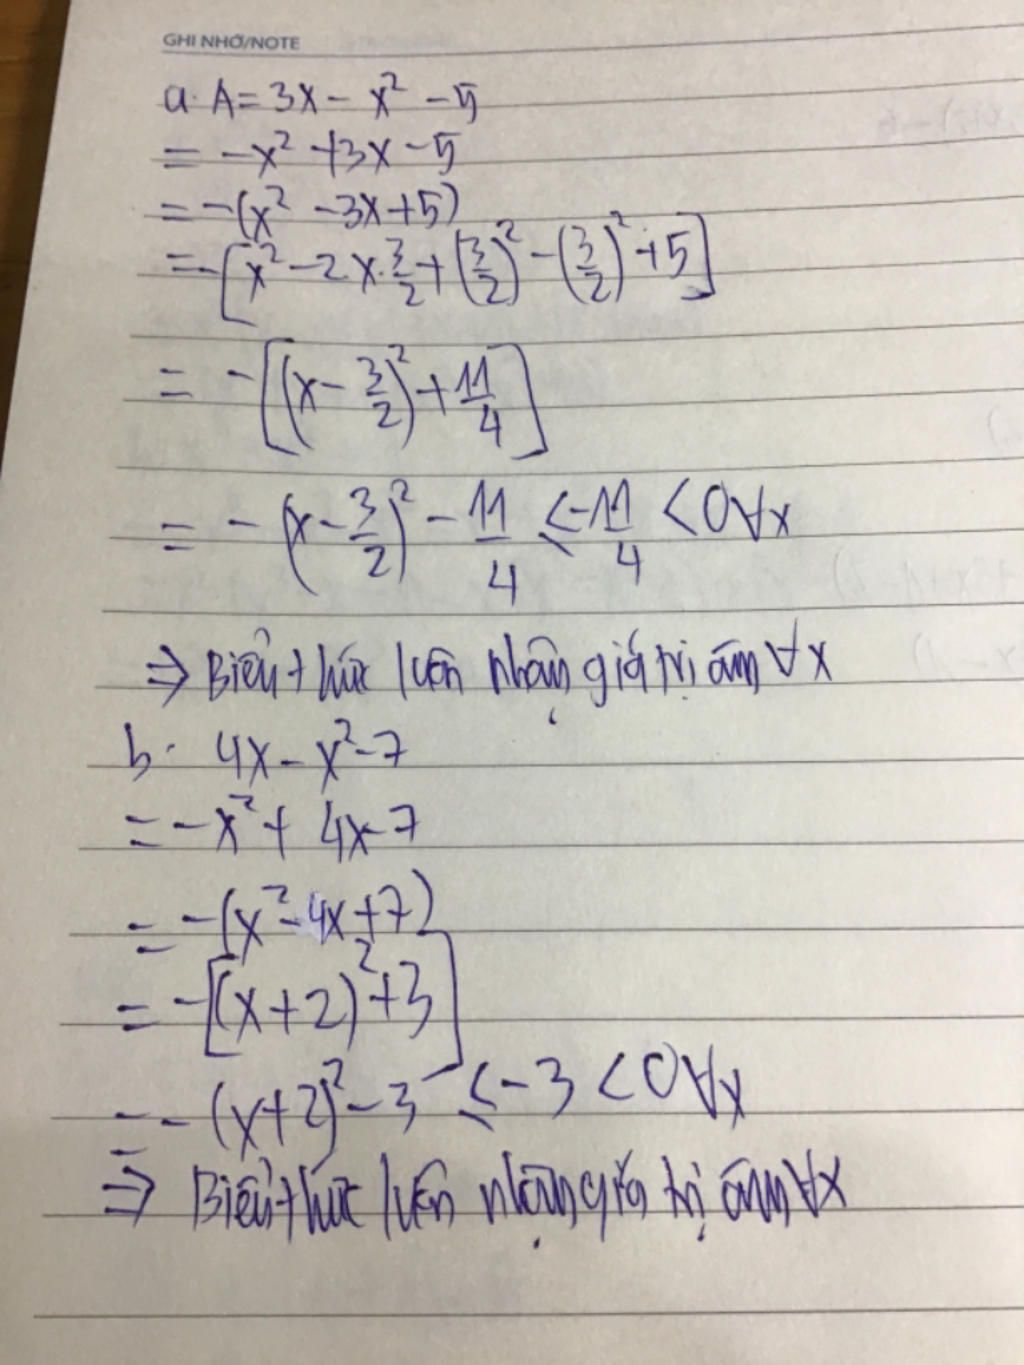 GHI NHỚ/NOTE
a. A = 3x - x² - 5
= -x² + 3x - 5
= -(x² - 3x + 5)
= -[x² - 2.x.3/2 + (3/2)² - (3/2)² + 5]
= -[(x - 3/2)² + 11/4]
= -(x - 3/2)² - 11/4 ≤ -11/4 < 0 ∀x
⇒ Biểu thức luôn nhận giá trị âm ∀x
b. 4x - x² - 7
= -x² + 4x - 7
= -(x² - 4x + 7)
= -[(x + 2)² + 3]
= -(x + 2)² - 3 ≤ -3 < 0 ∀x
⇒ Biểu thức luôn nhận giá trị âm ∀x